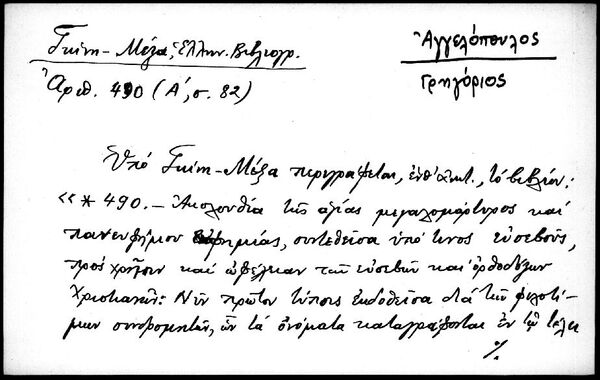 Γκίνη-Μέξα, Ἑλλην. Βιβλιογρ.
Ἀριθ. 490 (Α', σ. 82)
Ἀγγελόπουλος
Γρηγόριος
Ὑπό Γκίνη-Μέξα περιγράφεται, ἐνθ' ἀνωτ., τό βιβλίον:
«* 490.- Ἀκολουθία τῆς ἁγίας μεγαλομάρτυρος καί
πανευφήμου Εὐφημίας, συντεθεῖσα ὑπό τινος εὐσεβοῦς,
πρός χρῆσιν καί ὠφέλειαν τῶν εὐσεβῶν καί ὀρθοδόξων
Χριστιανῶν: Νῦν πρῶτον τύποις ἐκδοθεῖσα διά τῶν φιλοτί-
μων συνδρομητῶν, ὧν τά ὀνόματα καταγράφονται ἐν τῷ τέλει
%